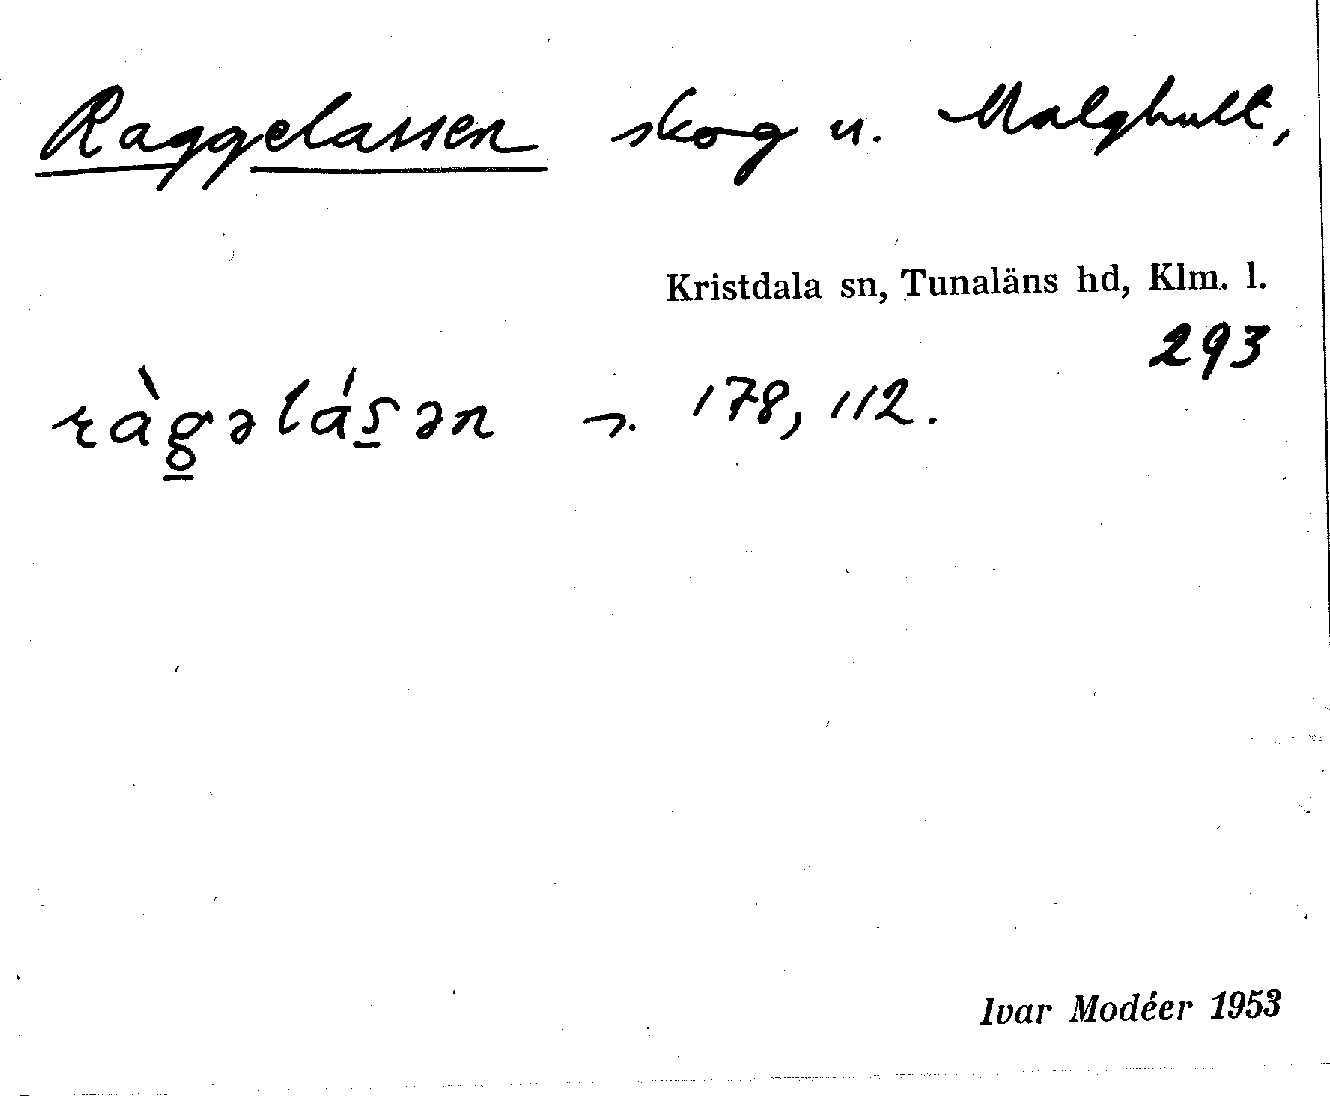 Raggelassen skog u. Malghult,
Kristdala sn, Tunaläns hd, Klm. l.
293
ràg̲əlás̲ən 178, 112.
Ivar Modéer 1953